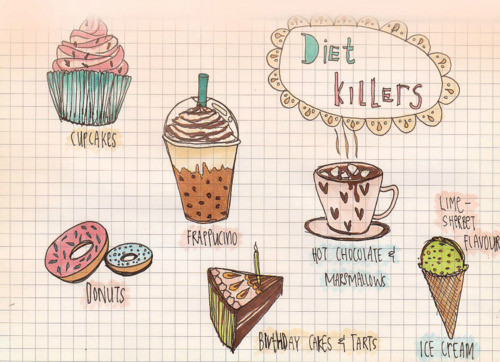 Diet
Killers
Cupcakes
Frappucino
Hot Chocolate &
Marsmallows
Lime-
Sherbet
Flavour
Donuts
Birthday Cakes & Tarts
Ice Cream